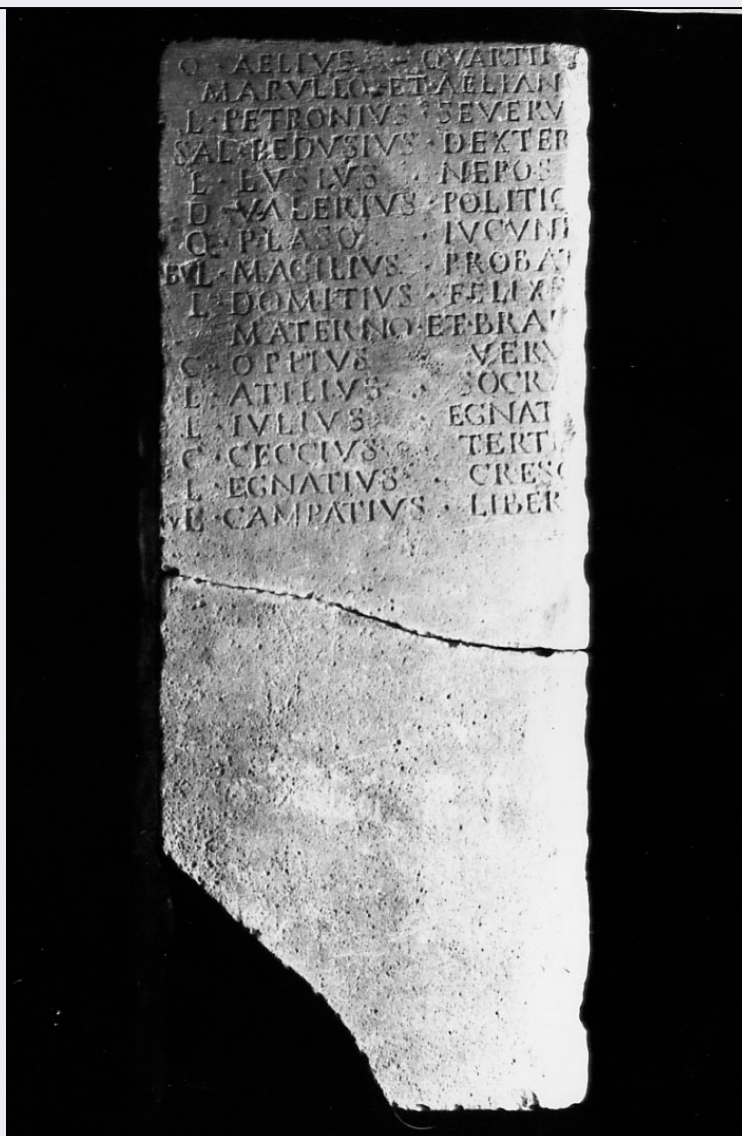 Q · AELIVS · QVARTI
MARVLLO · ET · AELIAN
L · PETRONIVS · SEVERV
SAL · BEDVSIVS · DEXTER
L · LVSIVS · NEPOS
D · VALERIVS · POLITIC
Q · PLASO · IVCVN
BVL · MAGILIVS · PROBAT
L · DOMITIVS · FELIX
MATERNO · ET · BRA
C · OPPIVS VERV
L · ATILIVS · SOCRA
L · IVLIVS · EGNAT
C · CECCIVS · TERTI
L · EGNATIVS · CRESC
VL · CAMPATIVS · LIBER